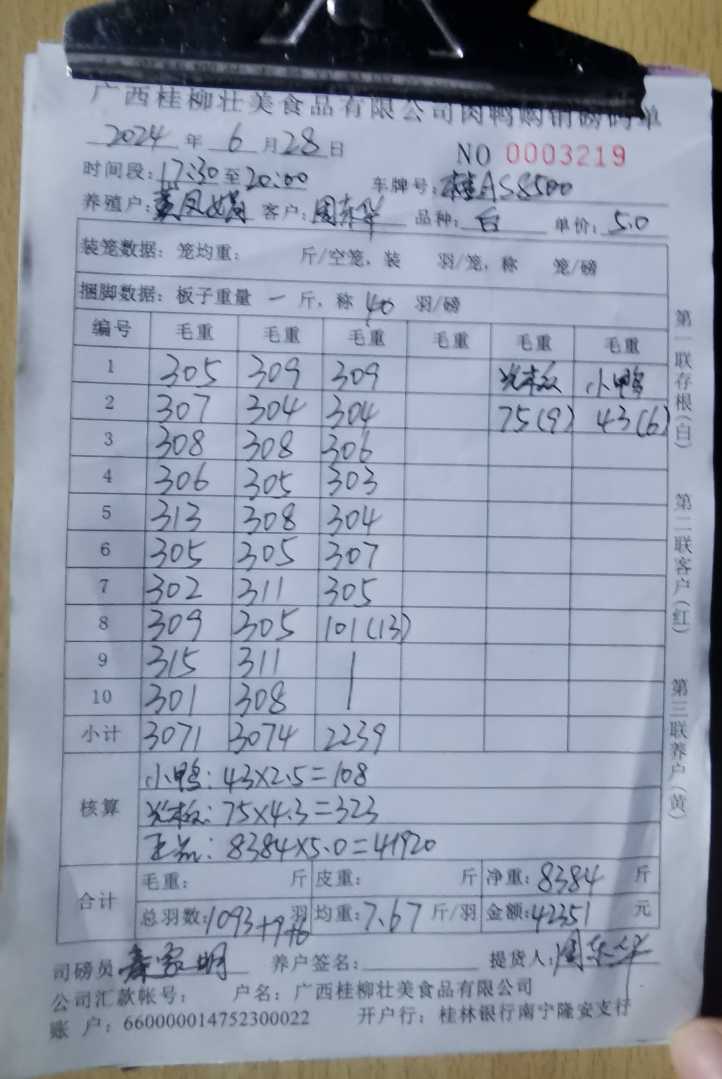 广西桂柳壮美食品有限公司肉鸭购销磅码单
2024 年 6 月 28 日
NO 0003219
时间段: 17:30 至 20:00 车牌号: 桂AS8500
养殖户: 客户: 周东华 品种: 台 单价: 5.0
装笼数据: 笼均重: 斤/空笼, 装 羽/笼, 称 笼/磅
捆脚数据: 板子重量 一 斤, 称 40 羽/磅
编号 毛重 毛重 毛重 毛重 毛重 毛重
1 305 309 309 光板 小鸭
2 307 304 304 75(9) 43(6)
3 308 308 306
4 306 305 303
5 313 308 304
6 305 305 307
7 302 311 305
8 309 305 101(13)
9 315 311
10 301 308
小计 3071 3074 2239
核算
小鸭: 43×2.5=108
光板: 75×4.3=323
正品: 8384×5.0=41920
合计
毛重: 斤 皮重: 斤 净重: 8384 斤
总羽数: 1093+9+6 羽 均重: 7.67 斤/羽 金额: 42351 元
司磅员 养户签名: 提货人: 周东华
公司汇款帐号: 户名: 广西桂柳壮美食品有限公司
账 户: 660000014752300022 开户行: 桂林银行南宁隆安支行
第一联存根(白)
第二联客户(红)
第三联养户(黄)